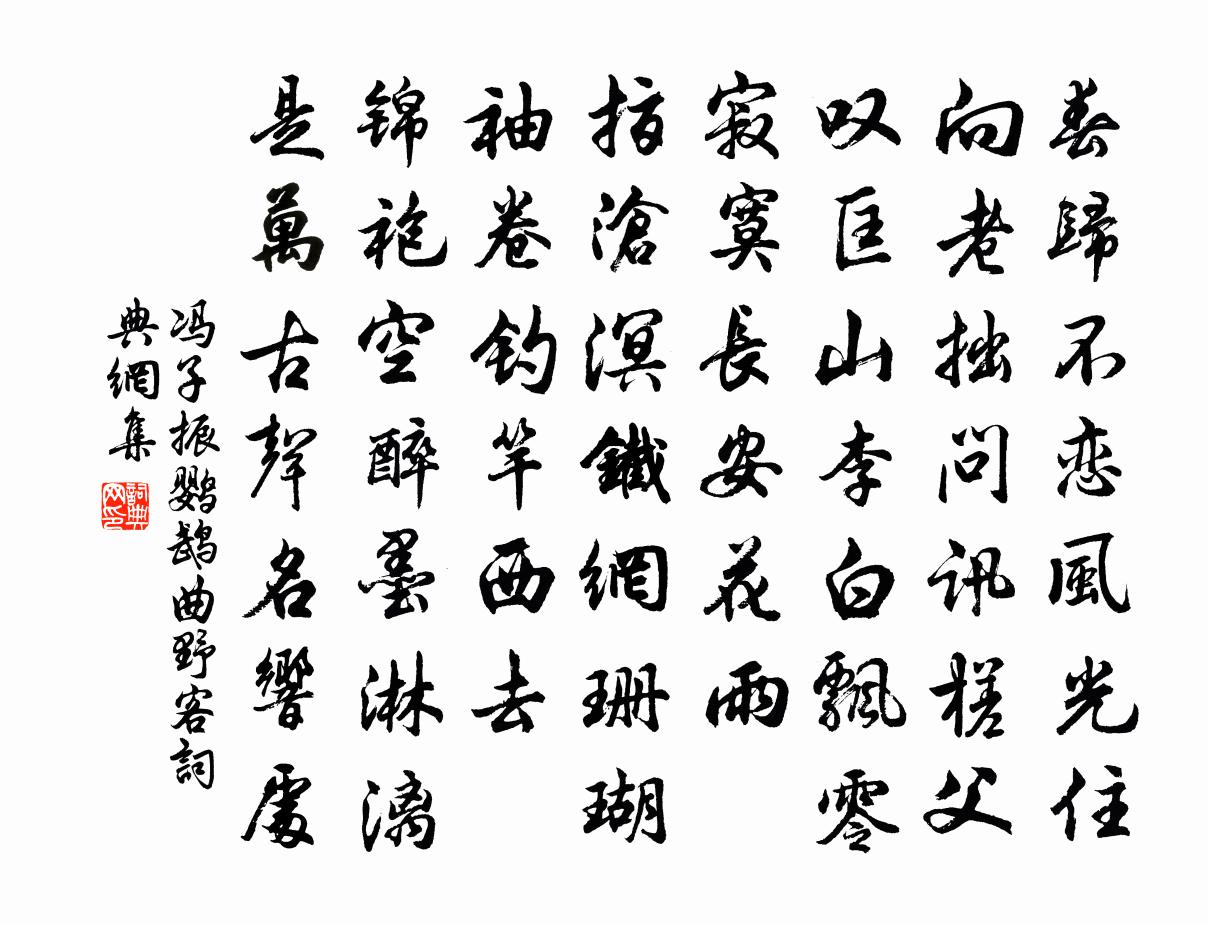 春歸不恋風光住
向老拙問訊槎父
叹匡山李白飄零
寂寞長安花雨
指滄溟鐵網珊瑚
袖卷钓竿西去
锦袍空醉墨淋漓
是萬古聲名響處
冯子振鹦鹉曲野客詞
典網集
詞典网印